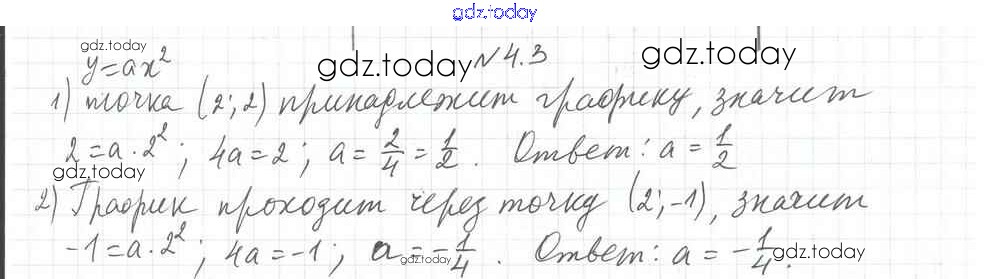 gdz.today
gdz.today
y=ax² gdz.today №4.3 gdz.today
1) точка (2;2) принадлежит графику, значит
2=a·2²; 4a=2; a=2/4=1/2. Ответ: a=1/2
gdz.today
2) График проходит через точку (2;-1), значит
-1=a·2²; 4a=-1; a=-1/4. Ответ: a=-1/4.
gdz.today gdz.today